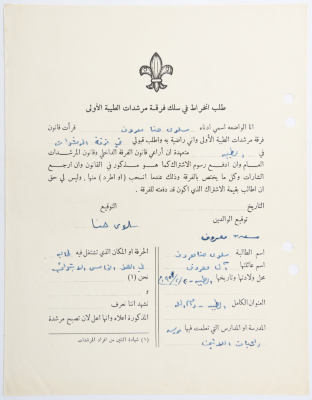 طلب انخراط في سلك فرقة مرشدات الطيبة الأولى
انا الواضعه اسمي ادناه سلوى حنا معروف قرأت قانون
فرقة مرشدات الطيبة الأولى واني راضية به واطلب قبولي في فرقة المرشدات
في الطيبه متعهدة ان أراعي قانون الفرقة الداخلي وقانون المرشدات
العام وان ادفع رسوم الاشتراك كما هو مذكور في القانون وان ارجع
الشارات وكل ما يختص بالفرقة وذلك عندما انسحب (او اطرد) منها، وليس لي حق
ان اطالب بقيمة الاشتراك الذي اكون قد دفعته للفرقة.
التاريخ
التوقيع
سلوى حنا
توقيع الوالدين
معروف
اسم الطالبة سلوى حنا معروف
اسم عائلتها آل معروف
محل ولادتها وتاريخها الطيبه
العنوان الكامل الطيبه - رام الله
المدرسة او المدارس التي تعلمت فيها
راهبات اللاتين
الحرفة او المكان الذي تشتغل فيه
في الصف
نحن (١)
و
نشهد اننا نعرف
المذكورة اعلاه وانها اهل لان تصبح مرشدة
(١) شهادة اثنتين من افراد المرشدات